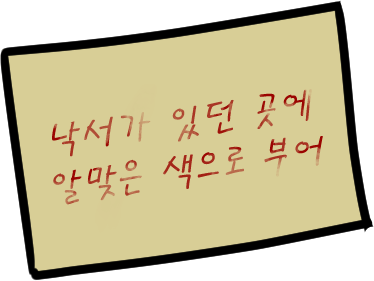 낙서가 있던 곳에
알맞은 색으로 부어